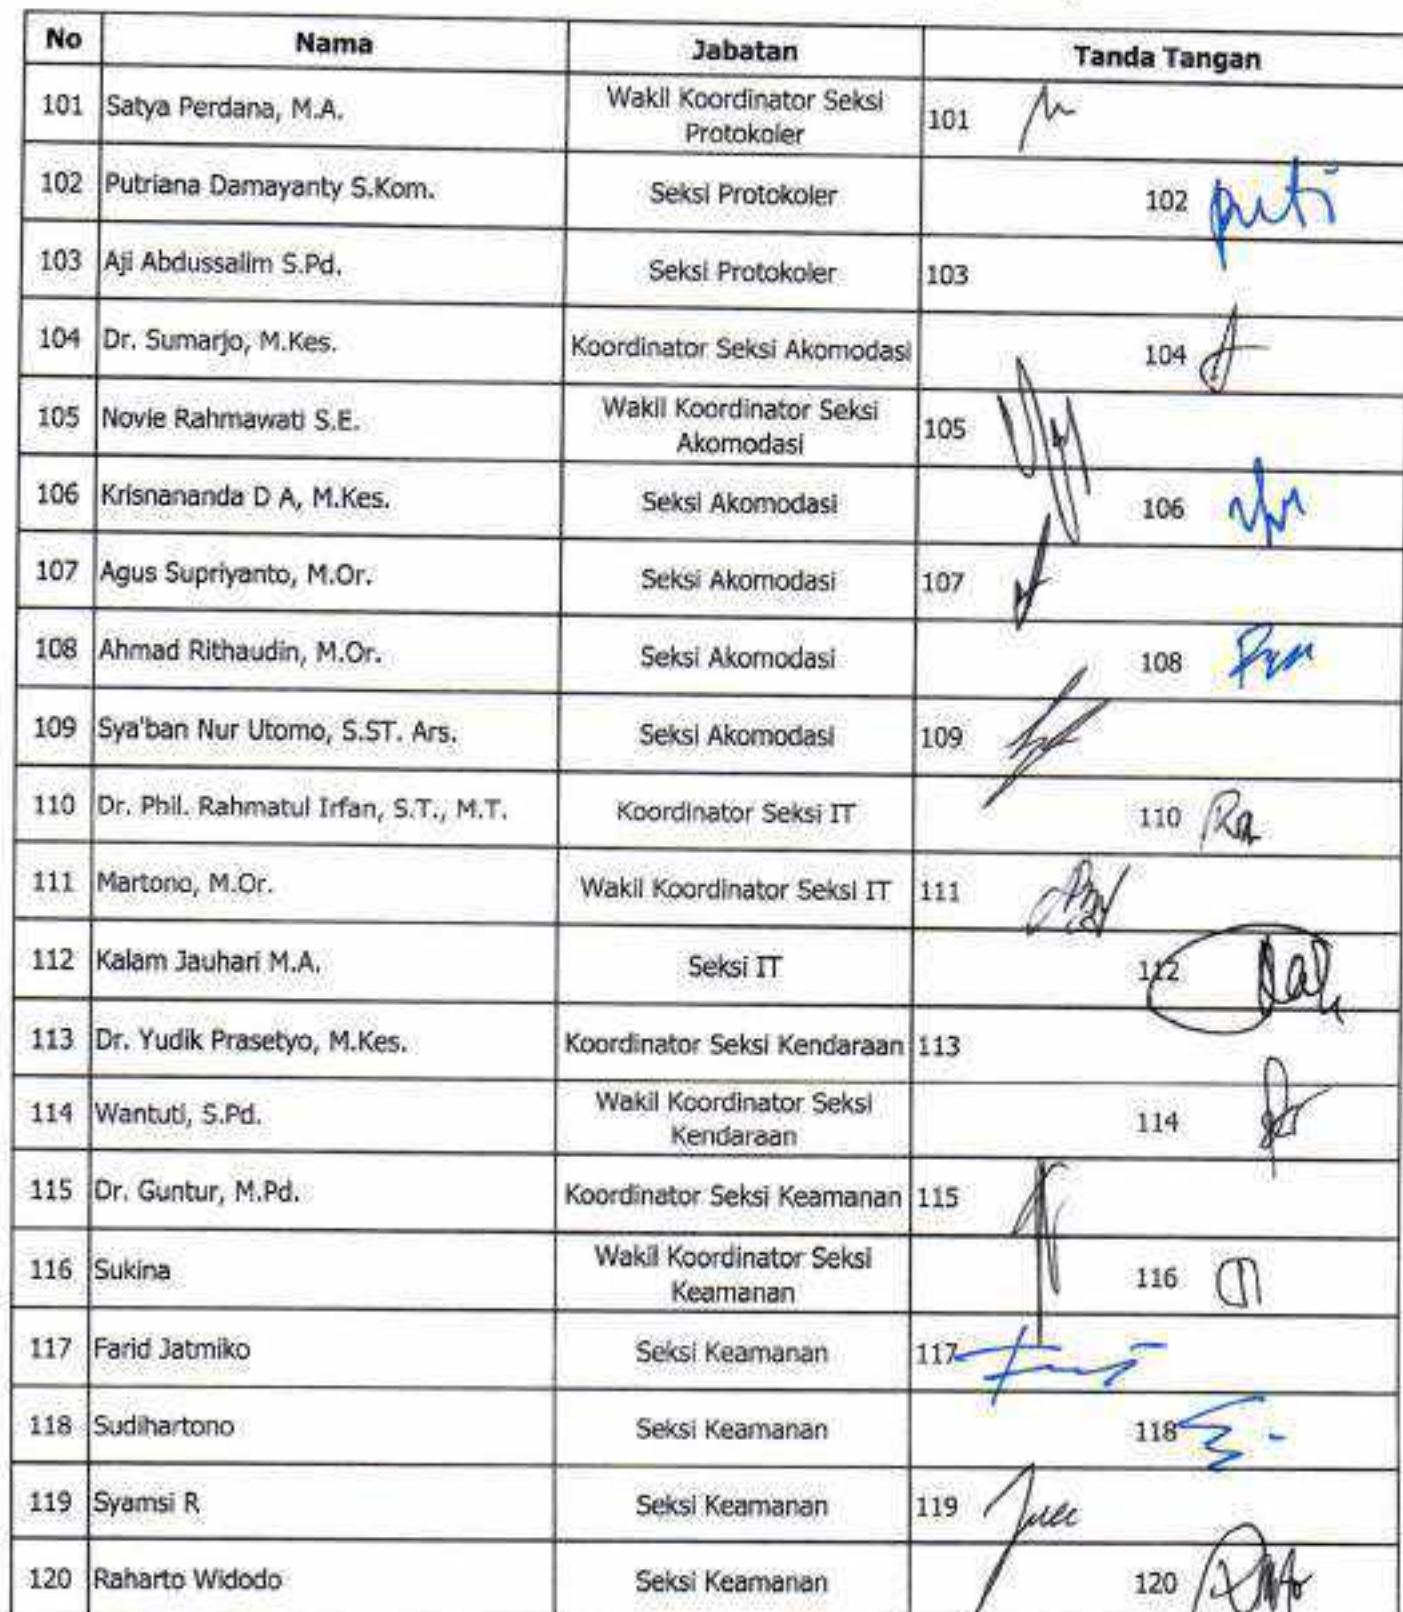 No Nama Jabatan Tanda Tangan
101 Satya Perdana, M.A. Wakil Koordinator Seksi
Protokoler 101
102 Putriana Damayanty S.Kom. Seksi Protokoler 102 puti
103 Aji Abdussalim S.Pd. Seksi Protokoler 103
104 Dr. Sumarjo, M.Kes. Koordinator Seksi Akomodasi 104
105 Novie Rahmawati S.E. Wakil Koordinator Seksi
Akomodasi 105
106 Krisnananda D A, M.Kes. Seksi Akomodasi 106
107 Agus Supriyanto, M.Or. Seksi Akomodasi 107
108 Ahmad Rithaudin, M.Or. Seksi Akomodasi 108
109 Sya'ban Nur Utomo, S.ST. Ars. Seksi Akomodasi 109
110 Dr. Phil. Rahmatul Irfan, S.T., M.T. Koordinator Seksi IT 110
111 Martono, M.Or. Wakil Koordinator Seksi IT 111
112 Kalam Jauhari M.A. Seksi IT 112
113 Dr. Yudik Prasetyo, M.Kes. Koordinator Seksi Kendaraan 113
114 Wantuti, S.Pd. Wakil Koordinator Seksi
Kendaraan 114
115 Dr. Guntur, M.Pd. Koordinator Seksi Keamanan 115
116 Sukina Wakil Koordinator Seksi
Keamanan 116
117 Farid Jatmiko Seksi Keamanan 117
118 Sudihartono Seksi Keamanan 118
119 Syamsi R Seksi Keamanan 119
120 Raharto Widodo Seksi Keamanan 120